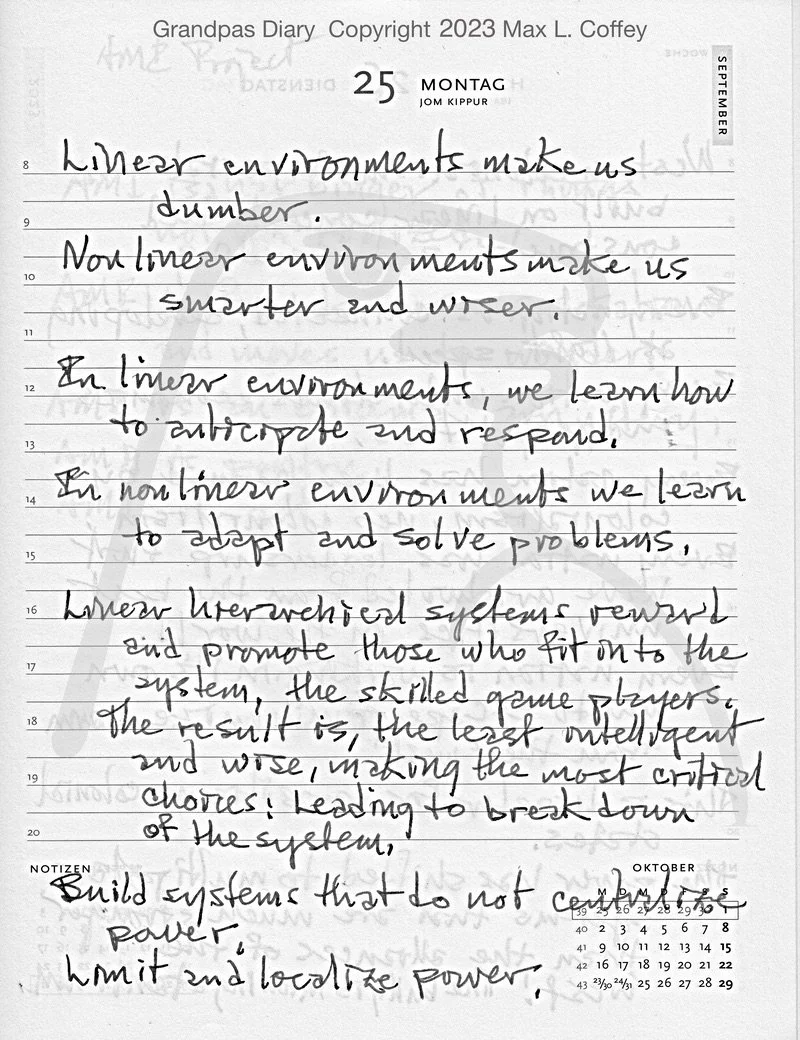 Grandpas Diary Copyright 2023 Max L. Coffey
AME Project
25 MONTAG
JOM KIPPUR
SEPTEMBER
8 Linear environments make us
dumber.
9
Non linear environments make us
10
smarter and wiser.
11
In linear environments, we learn how
12
to anticipate and respond.
13
In non linear environments we learn
14
to adapt and solve problems.
15
16 Linear hierarchical systems reward
and promote those who fit into the
17
system, the skilled game players.
18 The result is, the least intelligent
and wise, making the most critical
19
choices: Leading to break down
20 of the system.
NOTIZEN OKTOBER
Build systems that do not centralize
M D M D F S S
39 25 26 27 28 29 30 1
power.
40 2 3 4 5 6 7 8
41 9 10 11 12 13 14 15
Limit and localize power.
42 16 17 18 19 20 21 22
43 23/30 24/31 25 26 27 28 29